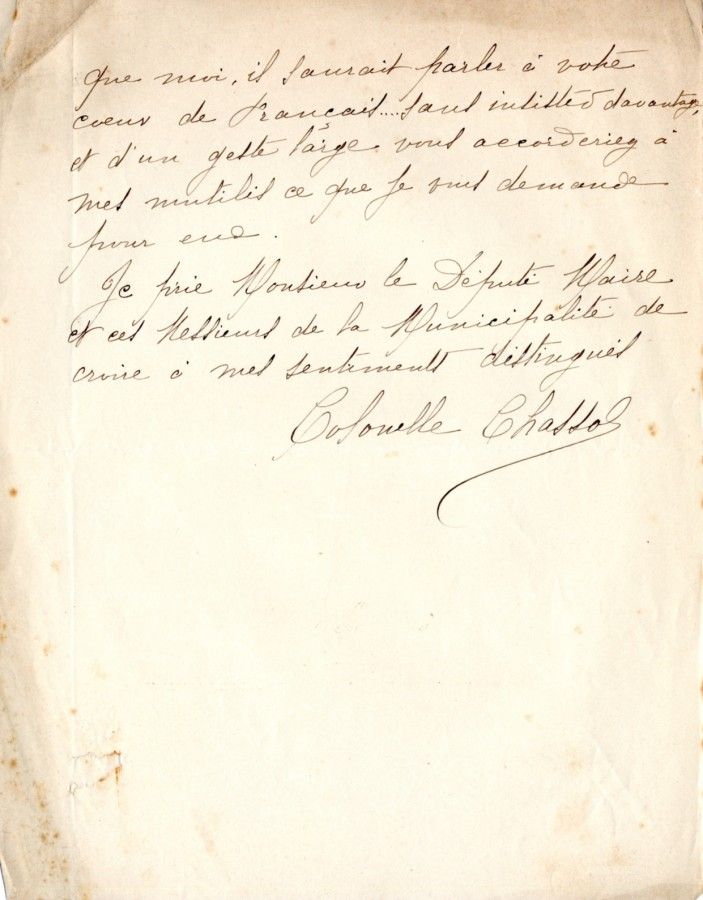 que moi, il saurait parler à votre
coeur de Français.... sans insister davantage,
et d'un geste large vous accorderiez à
mes mutilés ce que je vous demande
pour eux.
Je prie Monsieur le Député Maire
et ces Messieurs de la Municipalité de
croire à mes sentiments distingués
Colonelle Chassol